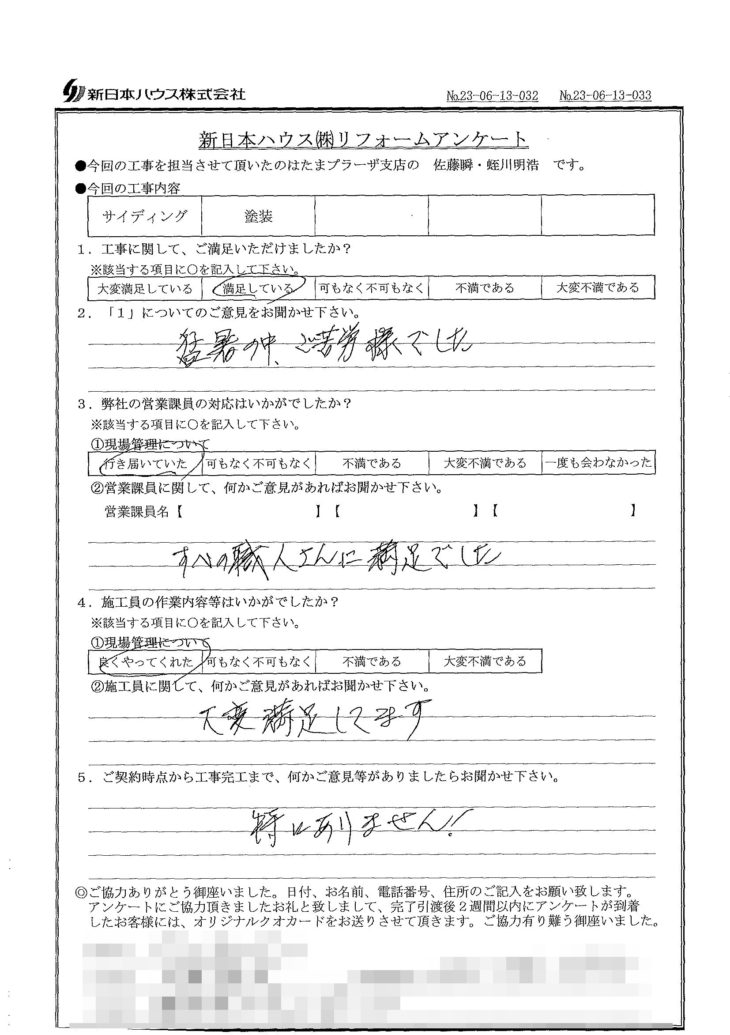 新日本ハウス株式会社 №23-06-13-032 №23-06-13-033
新日本ハウス㈱リフォームアンケート
●今回の工事を担当させて頂いたのはたまプラーザ支店の 佐藤瞬・蛭川明浩 です。
●今回の工事内容
サイディング 塗装
1．工事に関して、ご満足いただけましたか？
※該当する項目に○を記入して下さい。
大変満足している 満足している 可もなく不可もなく 不満である 大変不満である
2．「1」についてのご意見をお聞かせ下さい。
猛暑の中、ご苦労様でした
3．弊社の営業課員の対応はいかがでしたか？
※該当する項目に○を記入して下さい。
①現場管理について
行き届いていた 可もなく不可もなく 不満である 大変不満である 一度も会わなかった
②営業課員に関して、何かご意見があればお聞かせ下さい。
営業課員名【 】【 】【 】
すべの職人さんに満足でした
4．施工員の作業内容等はいかがでしたか？
※該当する項目に○を記入して下さい。
①現場管理について
良くやってくれた 可もなく不可もなく 不満である 大変不満である
②施工員に関して、何かご意見があればお聞かせ下さい。
大変満足してます
5．ご契約時点から工事完工まで、何かご意見等がありましたらお聞かせ下さい。
特にありません！
◎ご協力ありがとう御座いました。日付、お名前、電話番号、住所のご記入をお願い致します。
アンケートにご協力頂きましたお礼と致しまして、完了引渡後２週間以内にアンケートが到着
したお客様には、オリジナルクオカードをお送りさせて頂きます。ご協力有り難う御座いました。